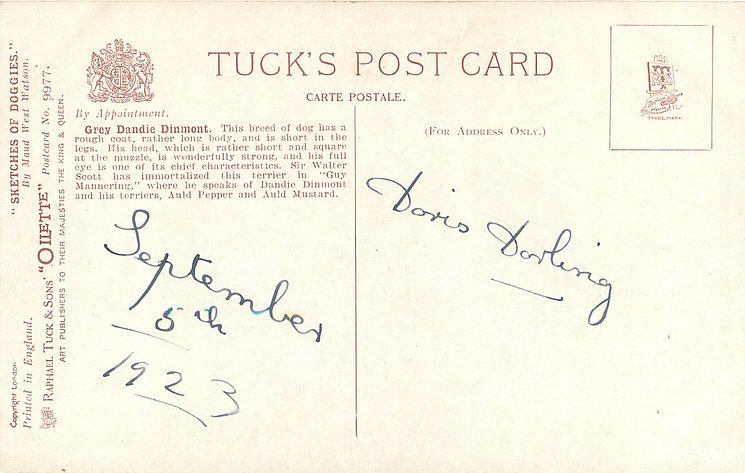 "SKETCHES OF DOGGIES."
By Maud West Watson.
"OILETTE" Postcard No. 9977.
RAPHAEL TUCK & SONS'
ART PUBLISHERS TO THEIR MAJESTIES THE KING & QUEEN.
Copyright London
Printed in England.
TUCK'S POST CARD
CARTE POSTALE.
By Appointment.
Grey Dandie Dinmont. This breed of dog has a
rough coat, rather long body, and is short in the
legs. His head, which is rather short and square
at the muzzle, is wonderfully strong, and his full
eye is one of its chief characteristics. Sir Walter
Scott has immortalized this terrier in "Guy
Mannering," where he speaks of Dandie Dinmont
and his terriers, Auld Pepper and Auld Mustard.
September
5th
1923
(FOR ADDRESS ONLY.)
TRADE MARK
Doris Dorling